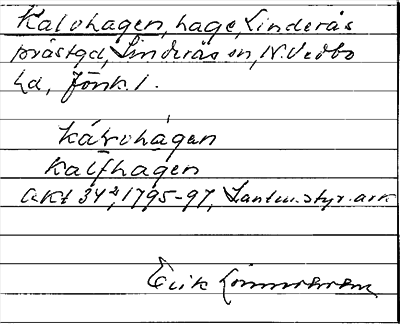 Kalvhagen, hage, Linderås
prästgd, Linderås sn, N. Vedbo
hd, Jönk. l.
kálvhágen
Kalfhagen
Akt 34², 1795-97, Lantm.styr. ark
Erik